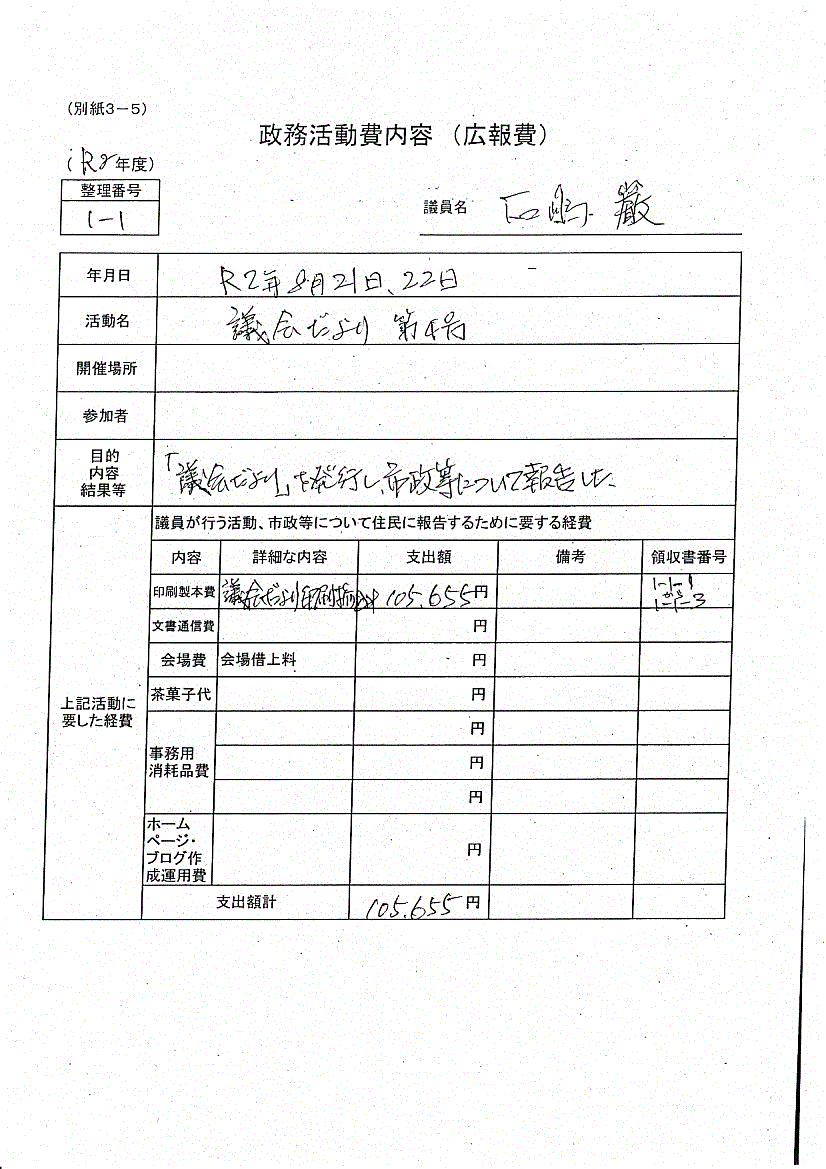 (別紙3-5)
政務活動費内容 (広報費)
(R2年度)
整理番号
1-1
議員名 石嶋 巌
年月日 R2年8月21日、22日
活動名 議会だより 第4号
開催場所
参加者
目的
内容
結果等
「議会だより」を発行し、市政等について報告した。
上記活動に
要した経費
議員が行う活動、市政等について住民に報告するために要する経費
内容 詳細な内容 支出額 備考 領収書番号
印刷製本費 議会だより印刷 105,655円 1-1-1から1-1-3
文書通信費 円
会場費 会場借上料 円
茶菓子代 円
事務用
消耗品費
円
円
円
ホーム
ページ・
ブログ作
成運用費
円
支出額計 105,655円